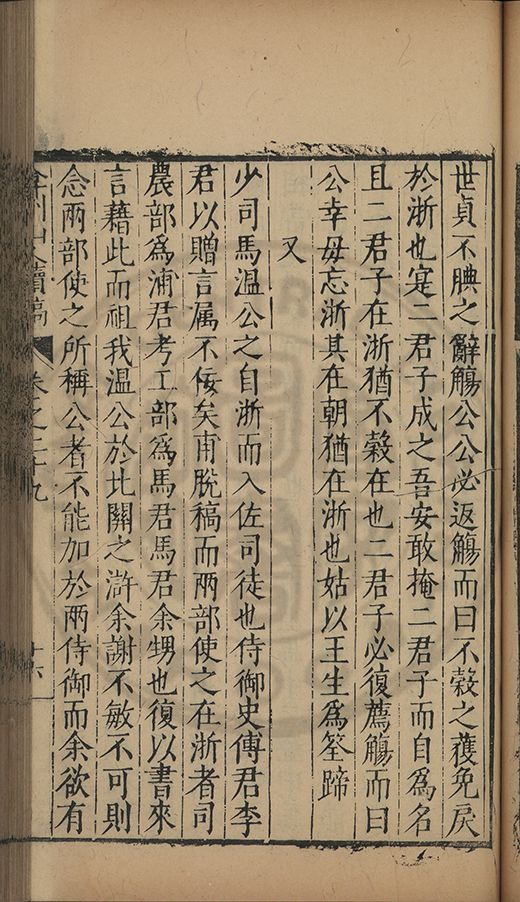 世貞不腆之辭觴公公必返觴而曰不榖之獲免戾
於浙也寔二君子成之吾安敢掩二君子而自為名
且二君子在浙猶不榖在也二君子必復薦觴而曰
公幸毋忘浙其在朝猶在浙也姑以王生為筌蹄
又
少司馬温公之自浙而入佐司徒也侍御史傅君李
君以贈言属不佞矣甫脫稿而兩部使之在浙者司
農部為浦君考工部為馬君馬君余甥也復以書來
言藉此而祖我温公於北關之滸余謝不敏不可則
念兩部使之所稱公者不能加於兩侍御而余欲有
弇州山人續稿 卷之二十九 十六